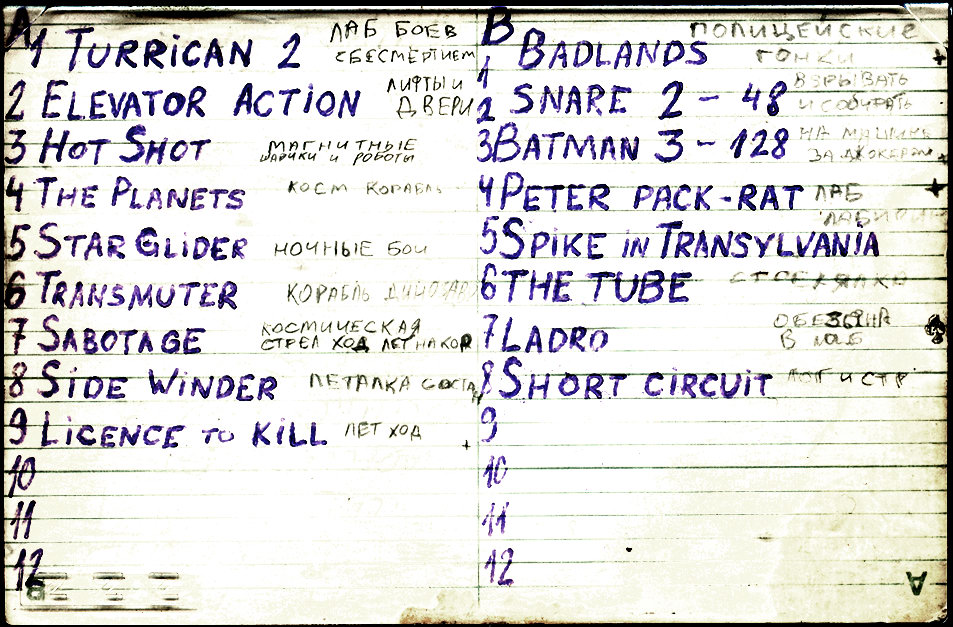 A
1 TURRICAN 2 ЛАБ БОЕВ
С БЕСМЕРТИЕМ
2 ELEVATOR ACTION ЛИФТЫ И
ДВЕРИ
3 HOT SHOT МАГНИТНЫЕ
ШАРИКИ И РОБОТЫ
4 THE PLANETS КОСМ КОРАБЛЬ
5 STAR GLIDER НОЧНЫЕ БОИ
6 TRANSMUTER КОРАБЛЬ
7 SABOTAGE КОСМИЧЕСКАЯ
СТРЕЛ ХОД ЛЕТ НА КОР
8 SIDE WINDER ЛЕТАЛКА
9 LICENCE TO KILL ЛЕТ ХОД
10
11
12
B
B ПОЛИЦЕЙСКИЕ
1 BADLANDS ГОНКИ
2 SNARE 2 - 48 ВЗРЫВАТЬ
И СОБИРАТЬ
3 BATMAN 3 - 128 НА МАШИНЕ
ЗА ДЖОКЕРОМ
4 PETER PACK-RAT ЛАБ
5 SPIKE IN TRANSYLVANIA
6 THE TUBE
7 LADRO
В ЛАБ
8 SHORT CIRCUIT
9
10
11
12
A